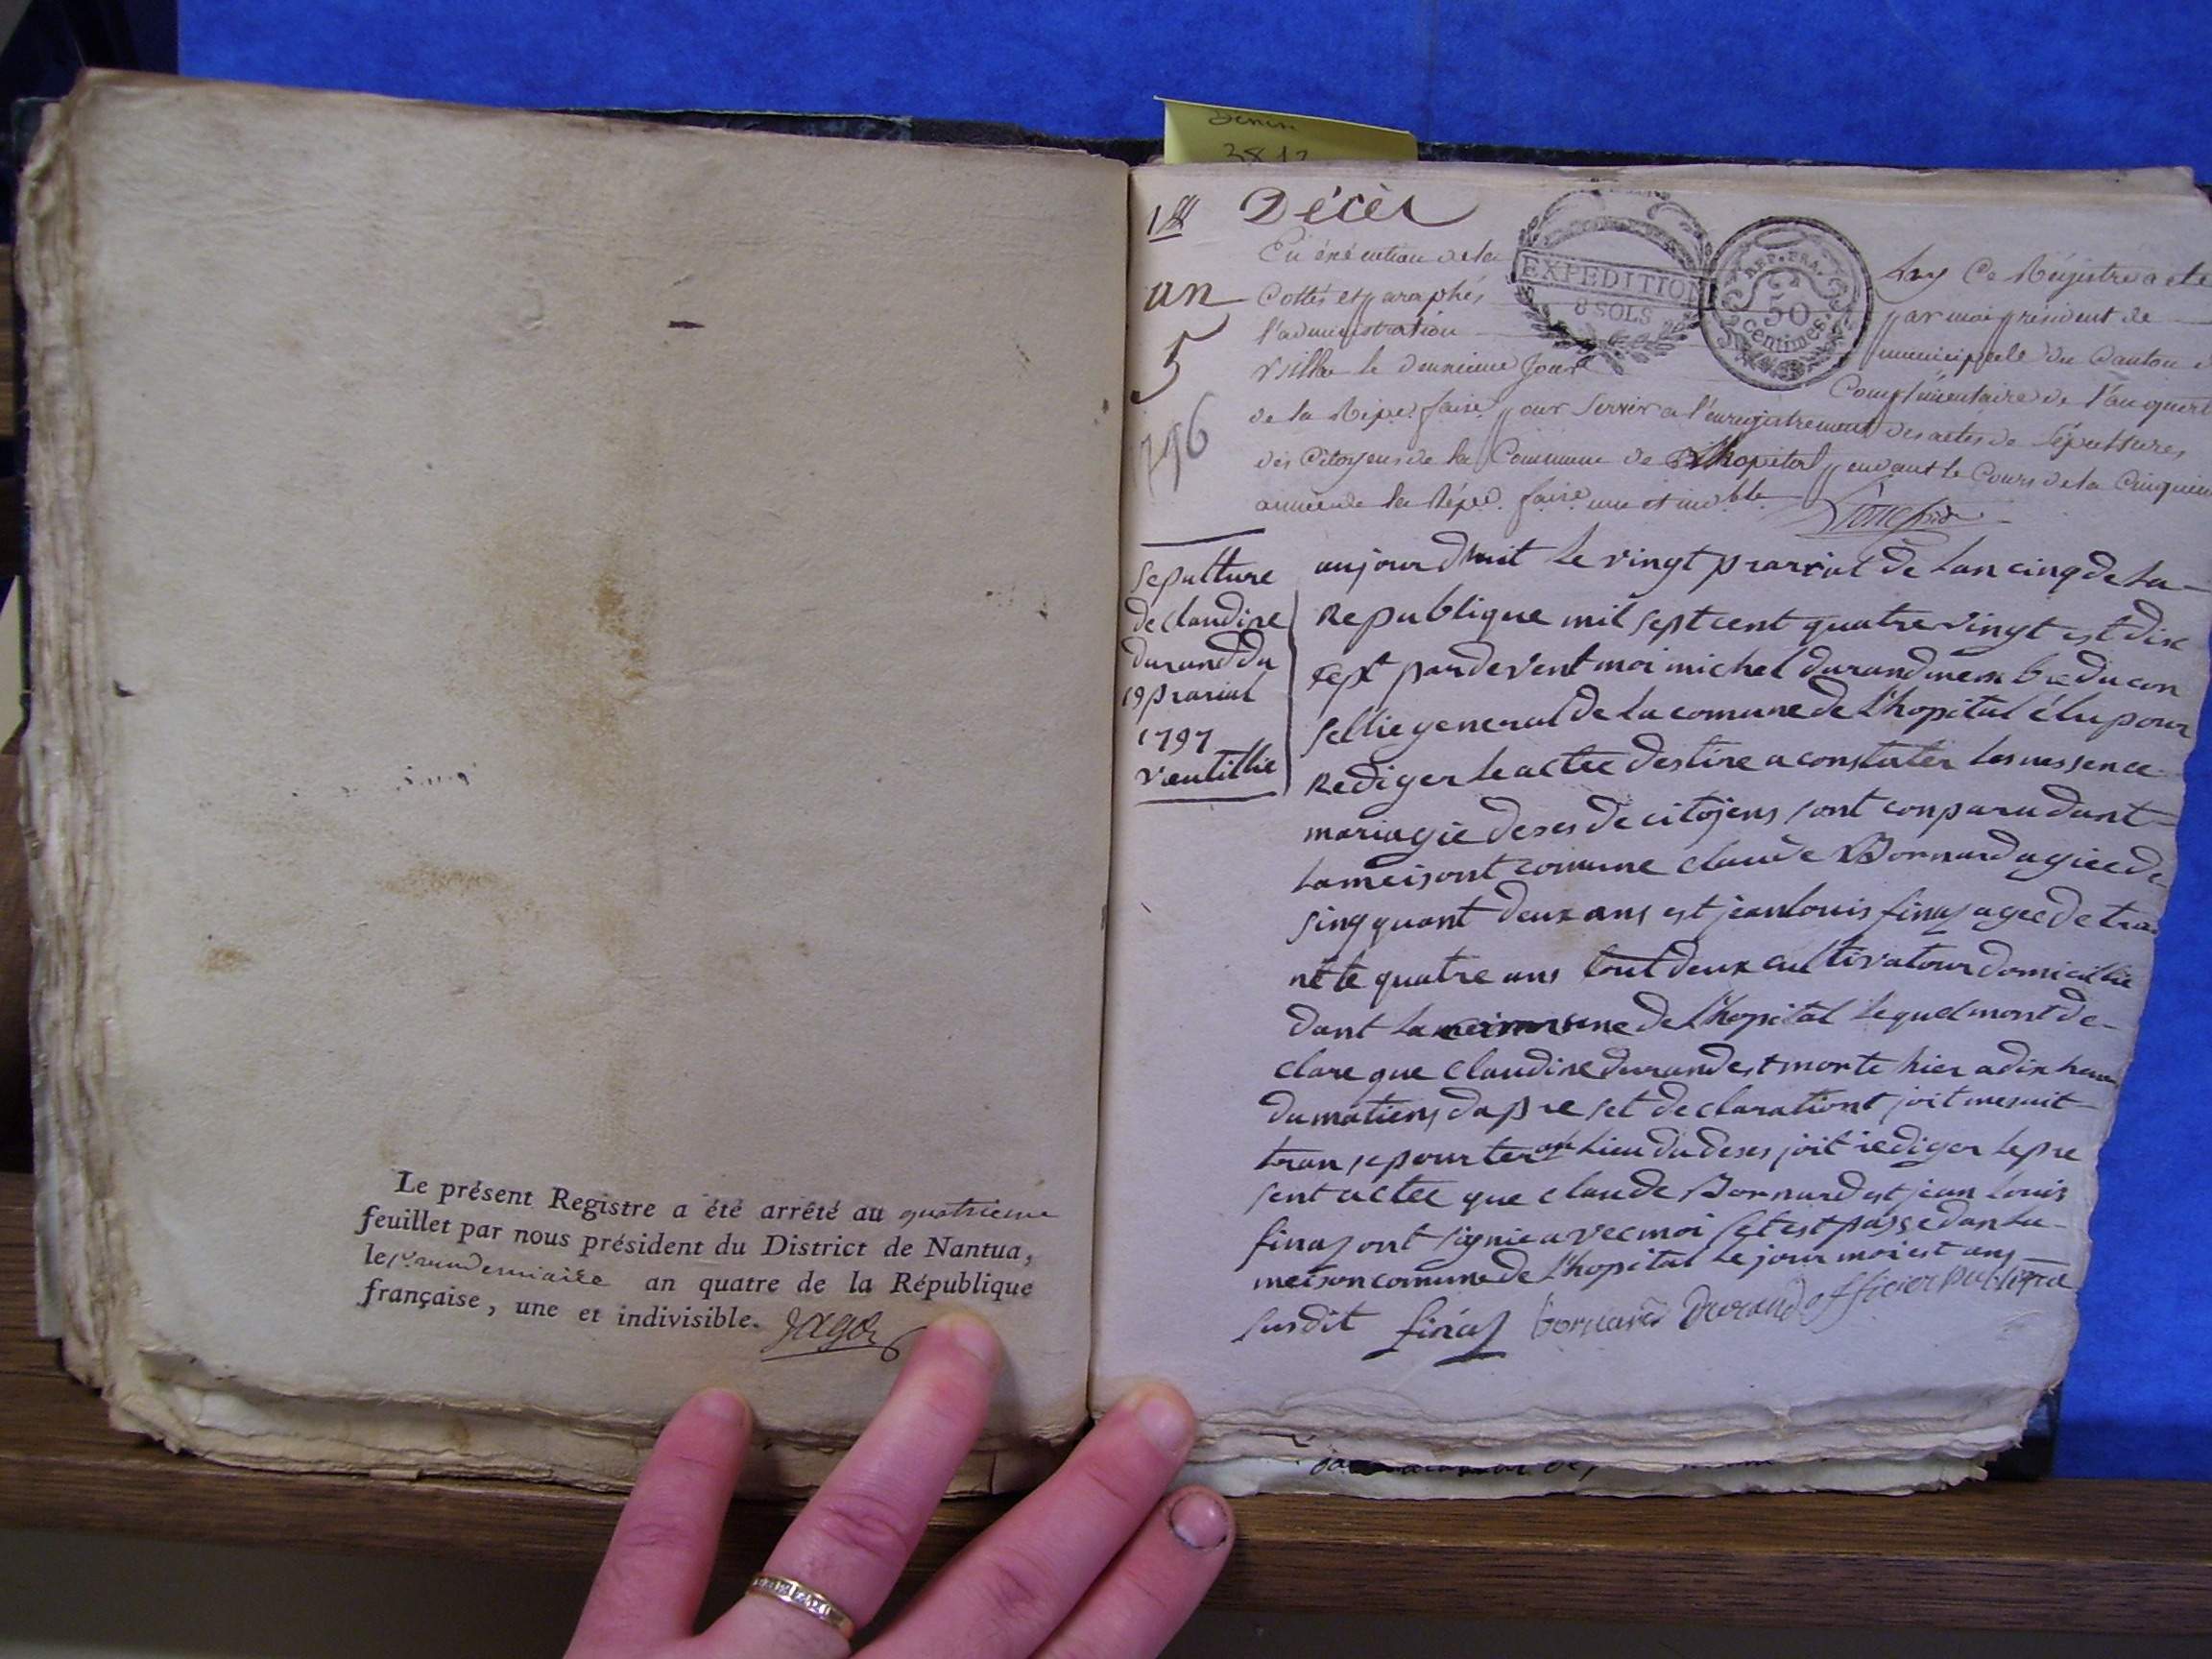 Le présent Registre a été arrêté au quatrieme
feuillet par nous président du District de Nantua,
le 1er vendemiaire an quatre de la République
française, une et indivisible.
3812
Décès
an
5
EXPEDITION
8 SOLS
REP. FRA.
50
centimes.
En éxécution de la Loy Ce Régistre a eté
Cottés et paraphés par moi président de
l'administration municipale du Canton
le deuxieme Jour Complémentaire de l'an quert
de la Répe. faise. pour Servir a l'enregistrement des actes de Sépultures
des Citoyens de la Commune de Lhopital pendant le Cours de la Cinquiem
année de la Répe. faise. une et indble
sepulture
de claudine
durand du
19 prarial
1797
aujourdhuit Le vingt prarial de Lan cinq de La
Republique mil sept cent quatre vingt est dix
sept pardevent moi michel durand membre du con
sellie general de La comune de Lhopital élu pour
Rediger le actee destine a constater Les nessence
mariagie deses de citojens sont conparu dant
La meisont comune claude Bornard agiee de
sing quant deux ans est jean louis finas agee de tra
nte quatre ans tout deux cultivatour domicillie
dant La comune de Lhopital Lequel mont de
clare que claudine durand est morte hier a dix heur
du matiens dapre set declarationt joit me suit
transepourter au Lieu du deses joit rediger Le pre
sent actee que claude Bornard est jean Louis
finas ont signie avec moi set est passe dan La
meison comune de Lhopital Le jour moi est ans
susdit finas bornard Durand officier publique